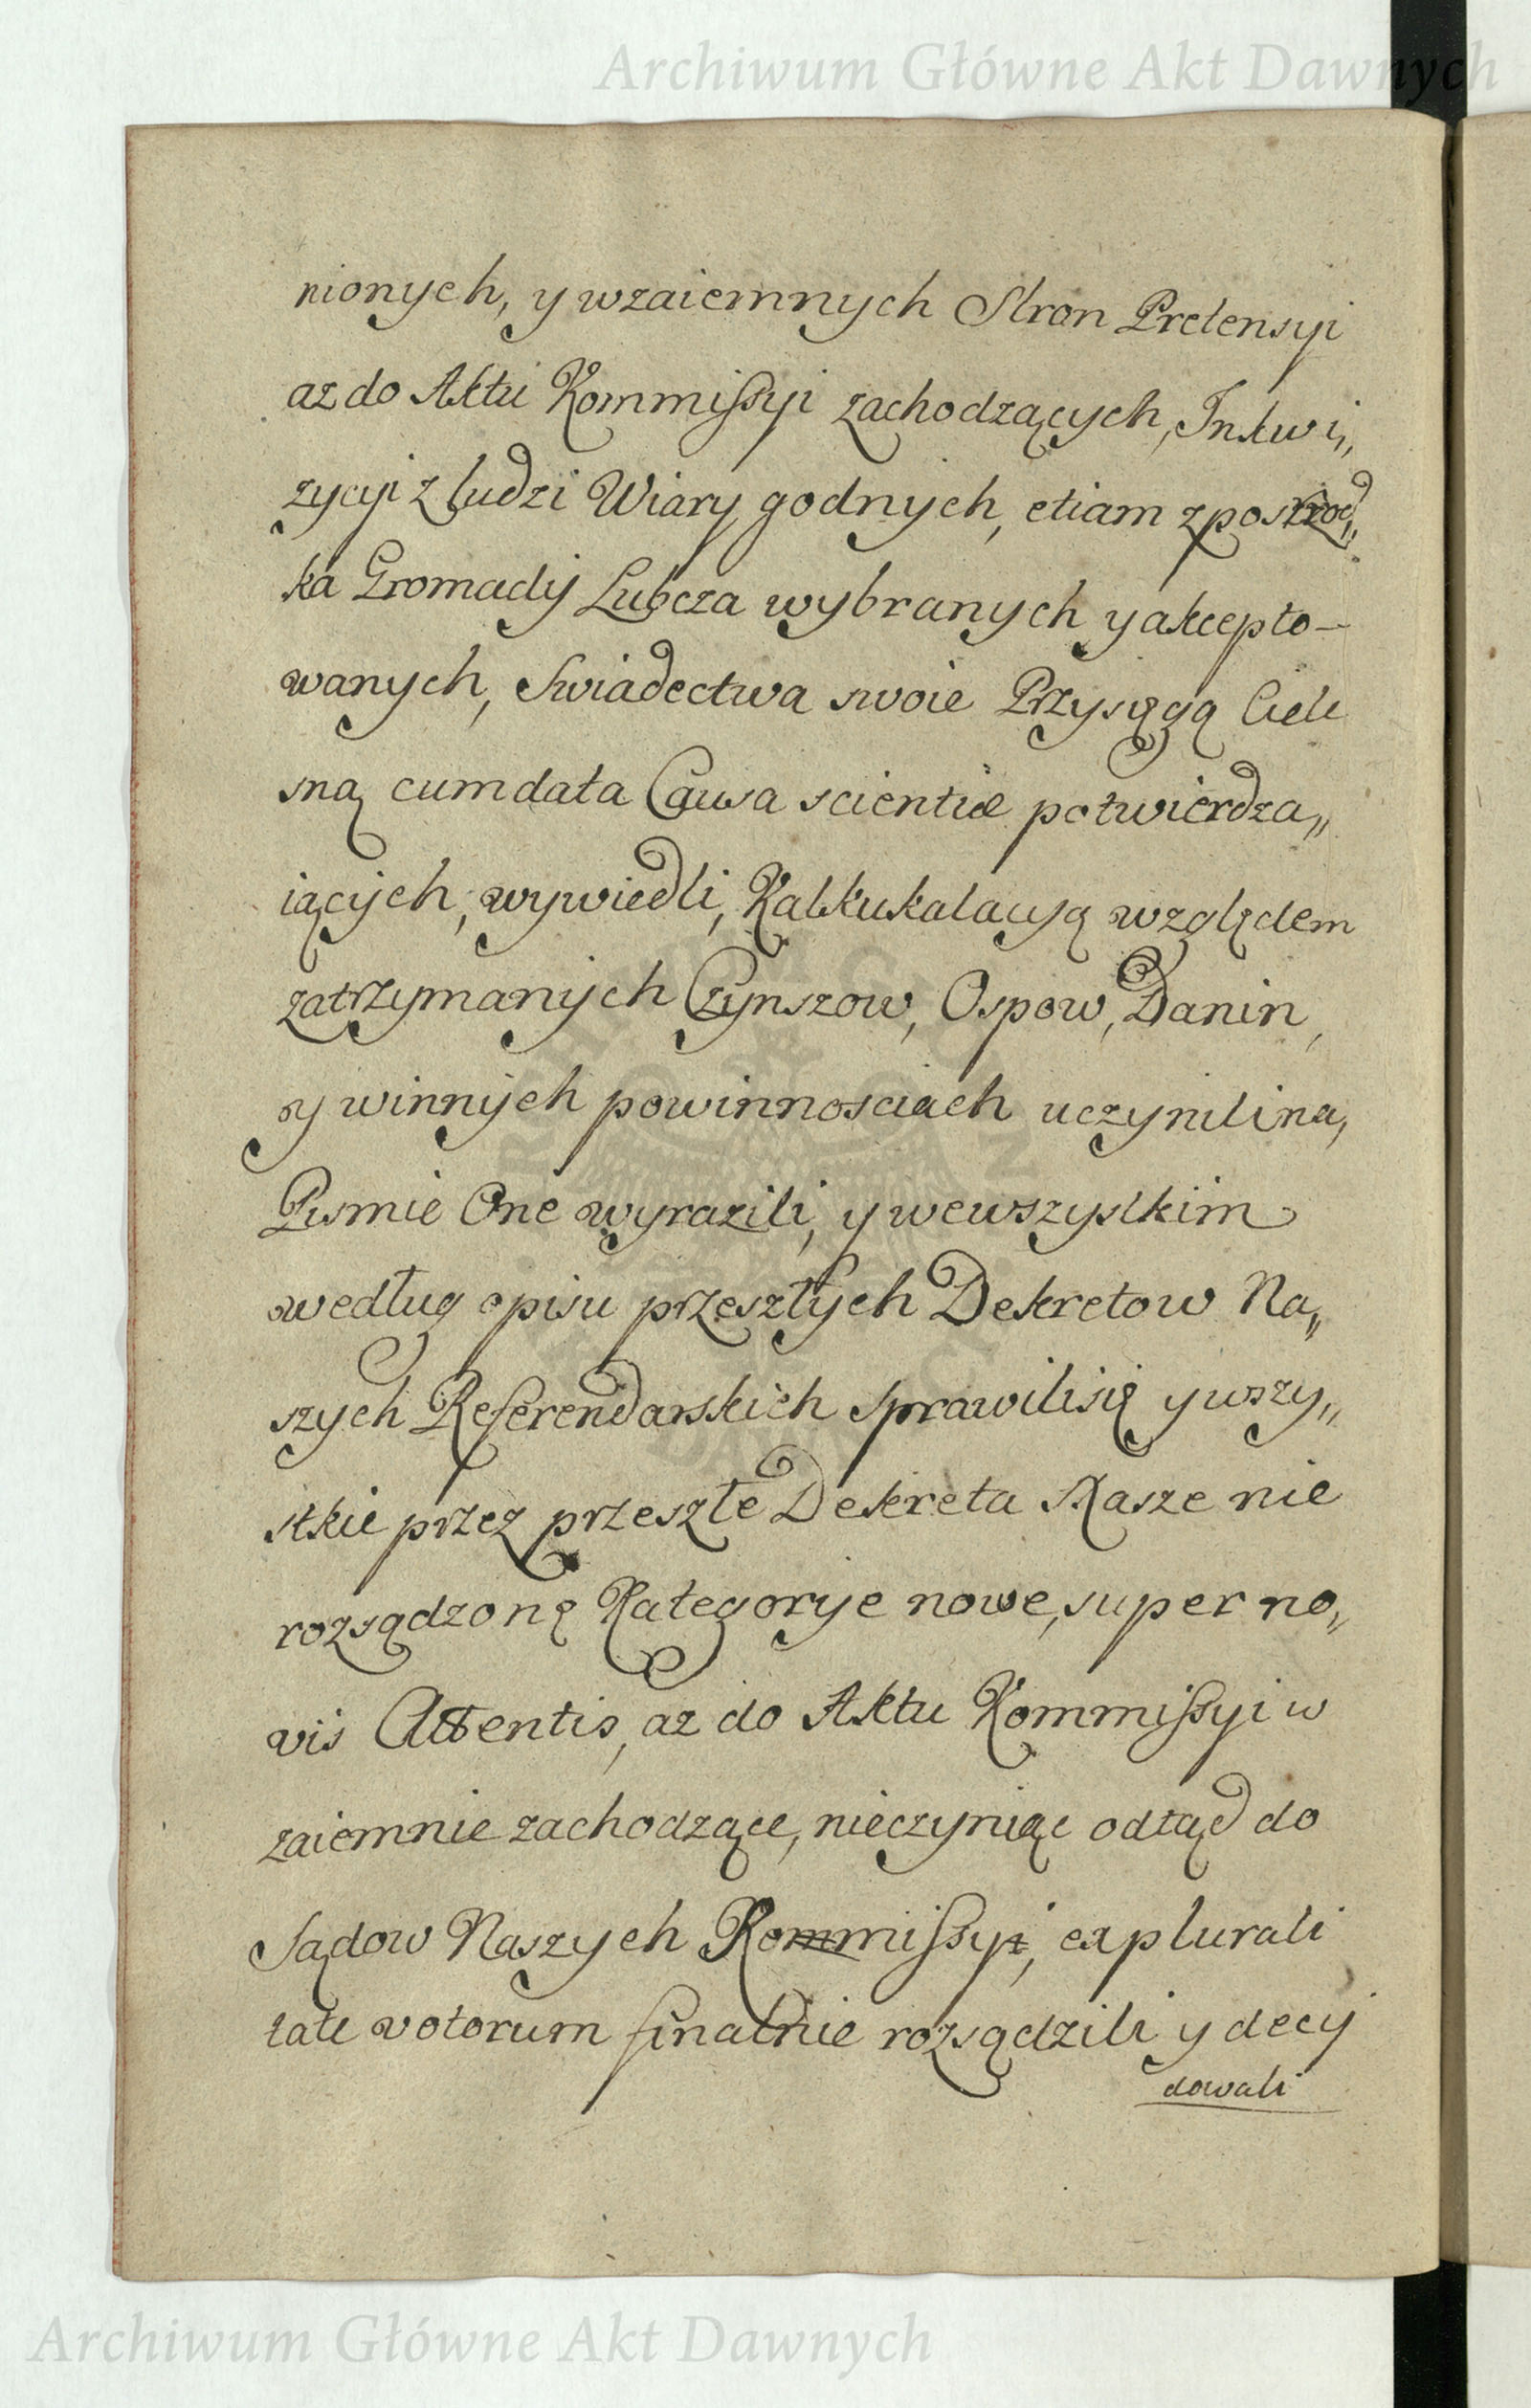 Archiwum Główne Akt Dawnych
nionych, y wzaiemnych Stron Pretensyi
az do Aktu Kommissyi zachodzących, Inkwi„
zycyi z ludzi Wiary godnych, etiam z posrzod„
ka Gromady Lubcza wybranych y akcepto–
wanych, Swiadectwa swoie Przysięgą Ciele
sną cum data Causa scientiæ potwierdza„
iących, wywiedli, Kalkukalacyą względem
zatrzymanych Czynszow, Ospow, Danin,
y winnych powinnosciach uczynili na,
Pismie One wyrazili, y wewszystkim
według opisu przeszłych Dekretow Na„
szych Referendarskich sprawili się y wszy„
stkie przez przeszłe Dekreta Nasze nie
rozsądzonę Kategorye nowe, super no„
vis Attentis, az do Aktu Kommissyi w
zaiemnie zachodzące, nieczyniąc odtąd do
Sądow Naszych Kommissyi, ex plurali
tate votorum finalnie rozsądzili y decy
dowali
Archiwum Główne Akt Dawnych